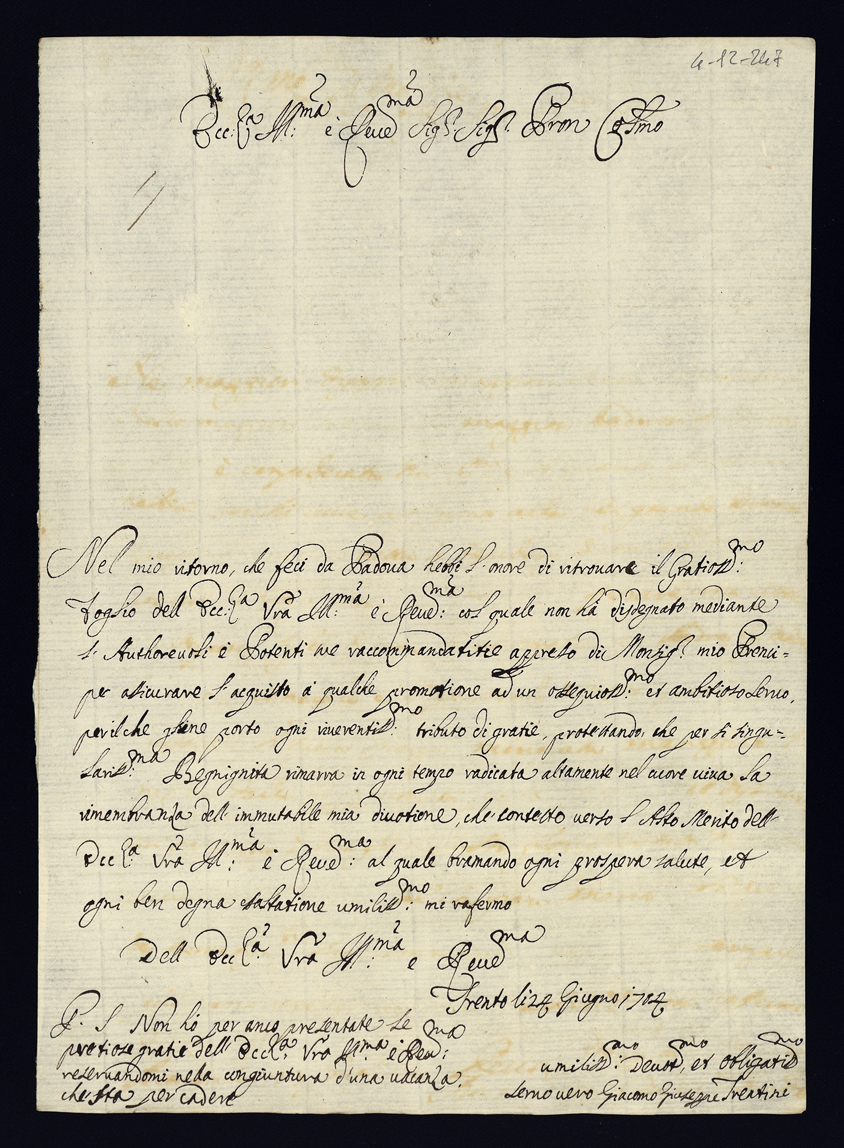 4-12-247
Ecc:za Ill:ma è Reuedma Sigr Sigr. Pron Colmo
Nel mio ritorno, che feci da Padoua hebbi l'onore di ritrouare il Gratiossmo:
foglio dell Ecc:za Vra Ill:ma è Reuedma: col quale non hà disdegnato mediante
l'Autoreuoli è Potenti sue raccommandatitie appresso di Monsigr. mio Prenci=
pe assicurare l'acquisto à qualche promotione ad un ossequiossmo: et ambitioso seruo,
per il che gliene porto ogni riuerentissmo: tributo di gratie, protestando, che per si singu=
larissma: Begnignità rimarra in ogni tempo radicata altamente nel cuore viua la
rimembranza dell'immutabile mia diuotione, che contesto verso l'Alto Merito dell
Ecc:za Vra Ill:ma è Reuedma: al quale bramando ogni prospera salute, et
ogni ben degna esaltatione umilissmo: mi rafermo
Dell Ecc:za Vra Ill:ma e Reuedma
Trento li 24 Giugno 1704
P. S. Non hò per anco presentate le
pretiose gratie dell'Ecc:za Vra Ill:ma è Reudma:
reseruandomi nella congiuntura d'una vacanza,
che sta per cadere
umilissmo: Deuotmo, et obligatissmo
seruo vero Giacomo Giuseppe Trentini